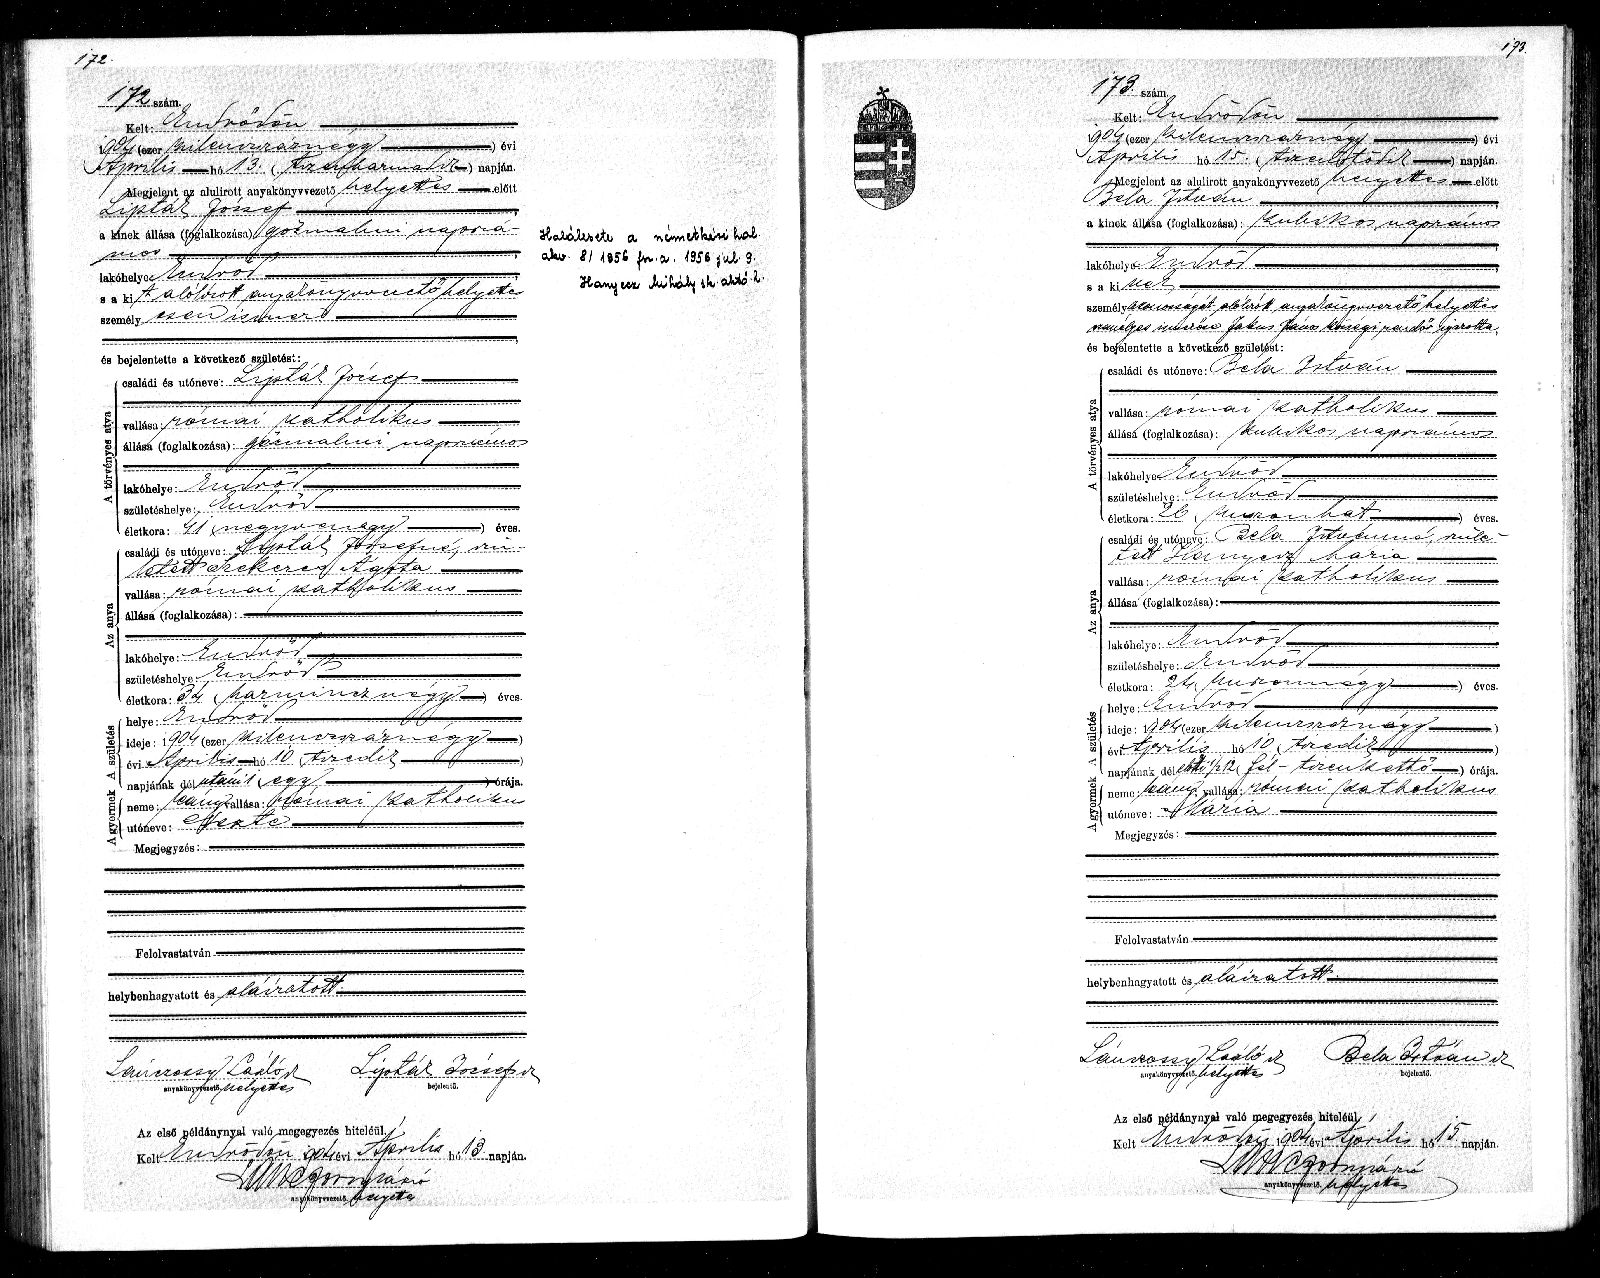 172.
172 szám.
Kelt: Endrődön
1904 (ezer kilenczszáznégy) évi
Április hó 13. (tizenharmadik) napján.
Megjelent az alulirott anyakönyvvezető helyettes előtt
Lipták József
a kinek állása (foglalkozása) gőzmalmi napszá-
mos
lakóhelye Endrőd
s a ki t alólirott anyakönyvvezető helyettes
személy esen ismer
és bejelentette a következő születést:
A törvényes atya
családi és utóneve: Lipták József
vallása: római katholikus
állása (foglalkozása): gőzmalmi napszámos
lakóhelye: Endrőd
születéshelye: Endrőd
életkora: 41 (negyvenegy) éves.
Az anya
családi és utóneve: Lipták Józsefné, szü-
letett Szekeres Ágota
vallása: római katholikus
állása (foglalkozása):
lakóhelye: Endrőd
születéshelye Endrőd
életkora: 34 (harmincznégy) éves.
A gyermek A születés
helye: Endrőd
ideje: 1904 (ezer kilenczszáznégy)
évi Április hó 10 (tizedik)
napjának dél utáni 1 (egy) órája.
neme: leány vallása: római katholikus
utóneve: Terka
Megjegyzés:
Felolvastatván
helybenhagyatott és aláiratott.
Lánczossy László sk Lipták József sk
anyakönyvvezető helyettes bejelentő.
Az első példánynyal való megegyezés hiteléül.
Kelt Endrődön 1904 évi Április hó 13 napján.
anyakönyvvezető. helyettes
Halálesete a németkéri hal.
akv. 8/1956 fsz. a. 1956 júl 9.
Hanyecz Mihály sk. aktó. h.
173.
173. szám.
Kelt: Endrődön
1904 (ezer kilenczszáznégy) évi
Április hó 15. (tizenötödik) napján.
Megjelent az alulirott anyakönyvvezető helyettes előtt
Bela István
a kinek állása (foglalkozása) kubikos napszámos
lakóhelye Endrőd
s a ki nek
személy azonosságát alólirott anyakönyvvezető helyettes
személyes ismerőse Jakus János községi rendőr igazolta,
és bejelentette a következő születést:
A törvényes atya
családi és utóneve: Bela István
vallása: római katholikus
állása (foglalkozása): kubikos napszámos
lakóhelye: Endrőd
születéshelye: Endrőd
életkora: 26 (huszonhat) éves.
Az anya
családi és utóneve: Bela Istvánné, szüle-
tett Hanyecz Mária
vallása: római katholikus
állása (foglalkozása):
lakóhelye: Endrőd
születéshelye: Endrőd
életkora: 24 (huszonnégy) éves.
A gyermek A születés
helye: Endrőd
ideje: 1904 (ezer kilenczszáznégy)
évi Április hó 10 (tizedik)
napjának dél előtti 1/2 12 (fél-tizenkettő) órája.
neme: leány, vallása: római katholikus
utóneve: Mária
Megjegyzés:
Felolvastatván
helybenhagyatott és aláiratott.
Lánczossy László sk Bela István sk
anyakönyvvezető. helyettes bejelentő.
Az első példánynyal való megegyezés hiteléül.
Kelt Endrődön 1904 évi Április hó 15 napján.
anyakönyvvezető. helyettes